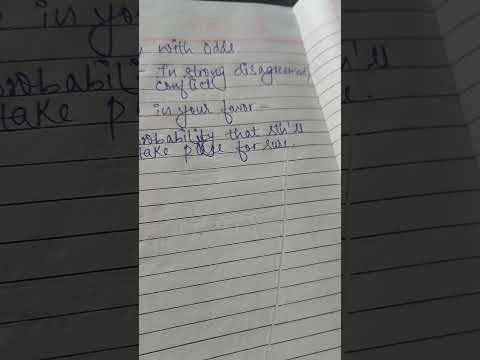 with odds
- In strong disagreement
conflict
in your favor -
probability that sth'll
take place for sure.